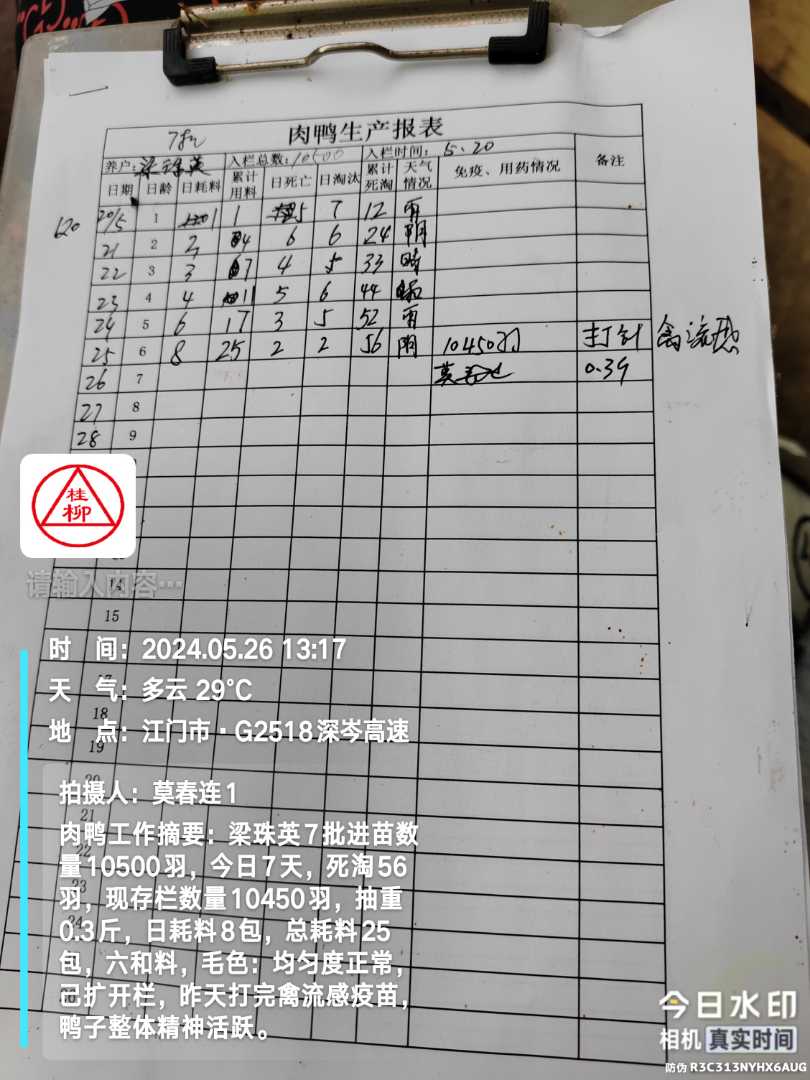 肉鸭生产报表
7批
养户: 梁珠英 入栏总数: 10500 入栏时间: 5.20
日期 日龄 日耗料 累计用料 日死亡 日淘汰 累计死淘 天气情况 免疫、用药情况 备注
20/5 1 1 1 5 7 12 雨
120
21 2 3 4 6 6 24 阴
22 3 3 7 4 5 33 晴
23 4 4 11 5 6 44
24 5 6 17 3 5 52 雨
25 6 8 25 2 2 56 阴 10450羽 打针 禽流感
26 7 0.39
27 8
28 9
桂柳
请输入内容···
14
15
时 间: 2024.05.26 13:17
天 气: 多云 29°C
18
地 点: 江门市·G2518深岑高速
19
拍摄人: 莫春连1
21
肉鸭工作摘要: 梁珠英7批进苗数
22
量10500羽, 今日7天, 死淘56
23
羽, 现存栏数量10450羽, 抽重
24
0.3斤, 日耗料8包, 总耗料25
包, 六和料, 毛色: 均匀度正常,
已扩开栏, 昨天打完禽流感疫苗,
鸭子整体精神活跃。
今日水印
相机 真实时间
防伪 R3C313NYHX6AUG